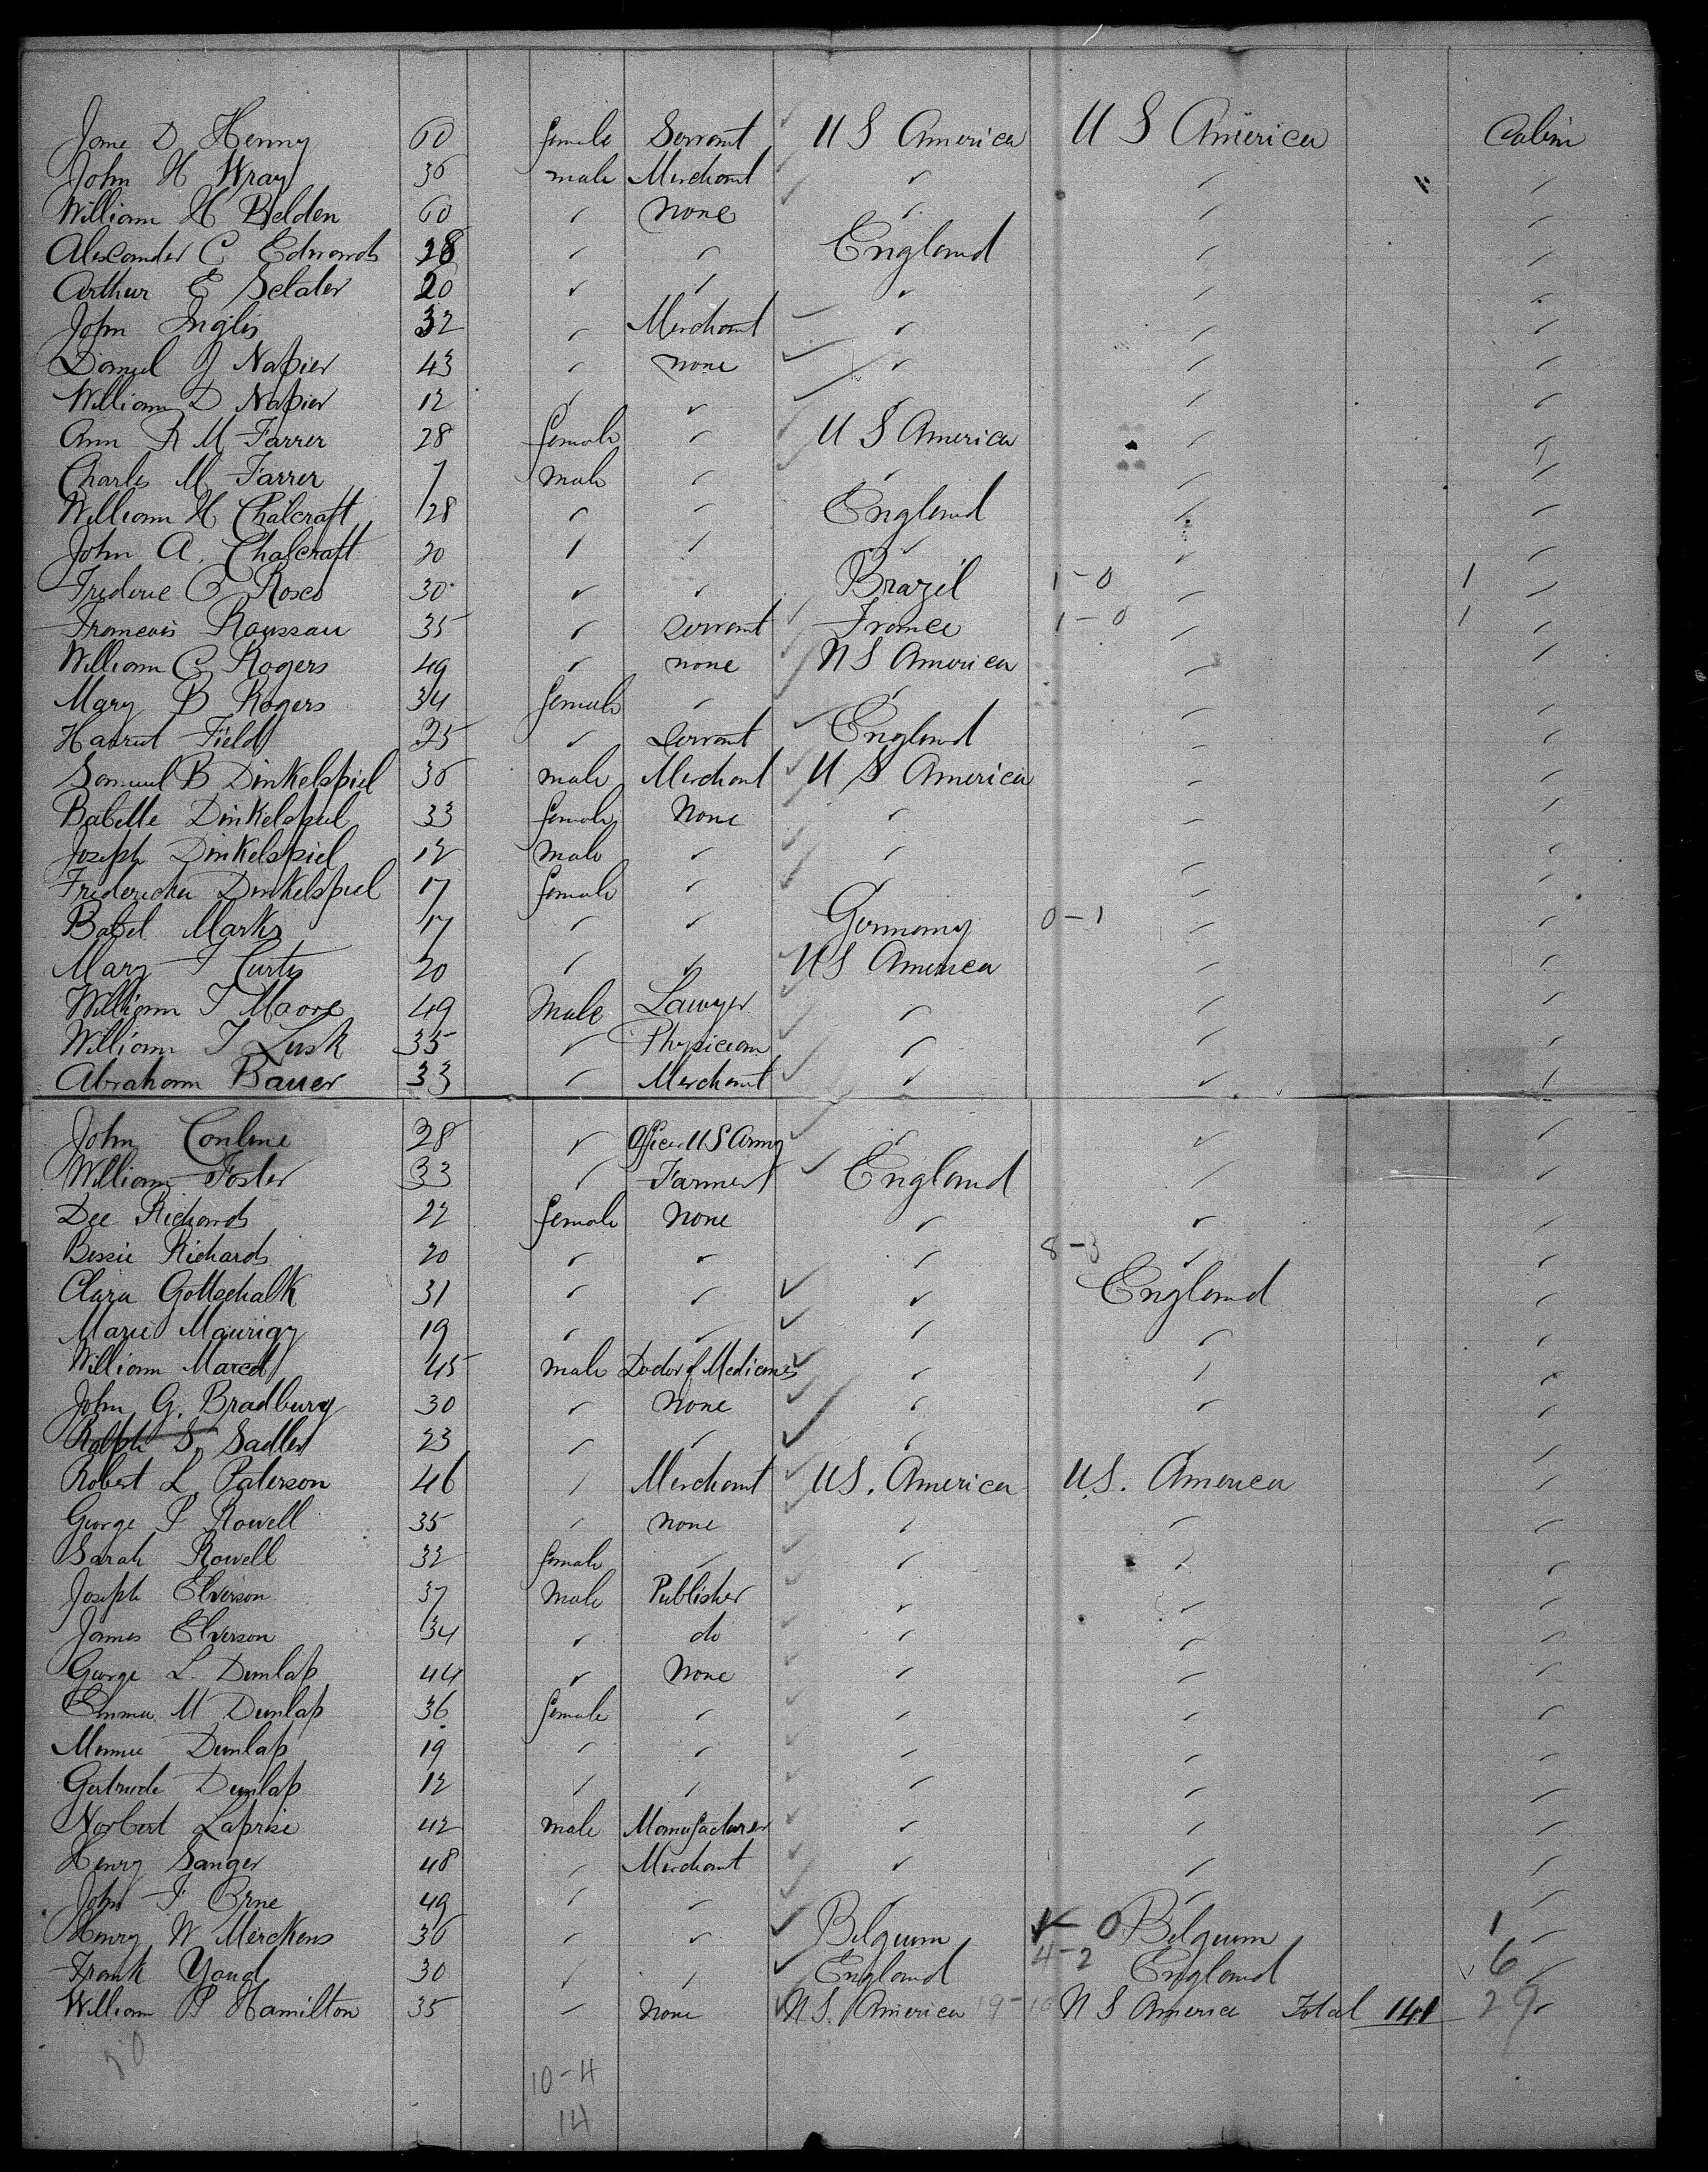 Jane D Henny 60 female Servant ✓ U S America U S America Cabin
John H Wray 36 male Merchant ✓ ✓ ✓ ✓
William H Belden 60 ✓ none ✓ ✓ ✓ ✓
Alexander C Edwards 28 ✓ ✓ England ✓ ✓
Arthur E Sclater 20 ✓ ✓ ✓ ✓ ✓
John Inglis 32 ✓ Merchant ✓ ✓ ✓ ✓
Daniel J Napier 43 ✓ none ✓ ✓ ✓ ✓
William D Napier 12 ✓ ✓ ✓ ✓ ✓
Ann R M Farrer 28 female ✓ ✓ U S America ✓ ✓
Charles M Farrer 7 male ✓ ✓ ✓ ✓ ✓
William H Chalcraft 28 ✓ ✓ England ✓ ✓
John A. Chalcraft 20 ✓ ✓ ✓ ✓ ✓
Frederic C Rosco 30 ✓ ✓ Brazil 1-0 ✓ 1 ✓
Francois Roussau 35 ✓ Servant ✓ France 1-0 ✓ 1 ✓
William C Rogers 49 ✓ none ✓ U S America ✓ ✓
Mary B Rogers 34 female ✓ ✓ ✓ ✓ ✓
Harriet Field 25 ✓ Servant ✓ England ✓ ✓
Samuel B Dinkelspiel 36 male Merchant ✓ U S America ✓ ✓
Babette Dinkelspiel 33 female None ✓ ✓ ✓ ✓
Joseph Dinkelspiel 12 male ✓ ✓ ✓ ✓ ✓
Fredericka Dinkelspiel 17 female ✓ ✓ ✓ ✓ ✓
Babel Marks 17 ✓ ✓ Germany 0-1 ✓ ✓
Mary T Curtis 20 ✓ ✓ ✓ US America ✓ ✓
William T Moore 49 Male Lawyer ✓ ✓ ✓ ✓
William T Lusk 35 ✓ Physician ✓ ✓ ✓ ✓
Abraham Bauer 33 ✓ Merchant ✓ ✓ ✓ ✓
John Conline 28 ✓ Officer US Army ✓ ✓ ✓ ✓
William Foster 33 ✓ Farmer ✓ England ✓ ✓
Dee Richards 22 female none ✓ ✓ ✓
Bessie Richards 20 ✓ ✓ ✓ 8-3 ✓ ✓
Clara Gottschalk 31 ✓ ✓ ✓ ✓ England ✓
Marie Maurigy 19 ✓ ✓ ✓ ✓ ✓ ✓
William Marcet 45 male Doctor of Medicines ✓ ✓ ✓ ✓
John G. Bradbury 30 ✓ none ✓ ✓ ✓ ✓
Ralph S. Sadler 23 ✓ ✓ ✓ ✓ ✓ ✓
Robert L. Paterson 46 ✓ Merchant ✓ US. America U.S. America ✓
George P Rowell 35 ✓ none ✓ ✓ ✓ ✓
Sarah Rowell 32 female ✓ ✓ ✓ ✓ ✓
Joseph Elverson 37 Male Publisher ✓ ✓ ✓ ✓
James Elverson 34 ✓ do ✓ ✓ ✓ ✓
George L. Dunlap 44 ✓ None ✓ ✓ ✓ ✓
Emma M Dunlap 36 female ✓ ✓ ✓ ✓ ✓
Minnie Dunlap 19 ✓ ✓ ✓ ✓ ✓ ✓
Gertrude Dunlap 12 ✓ ✓ ✓ ✓ ✓ ✓
Norbert Laprise 42 male Manufacturer ✓ ✓ ✓ ✓
Henry Sanger 48 ✓ Merchant ✓ ✓ ✓ ✓
John F Orne 49 ✓ ✓ ✓ ✓ ✓ ✓
Henry W Merckens 36 ✓ ✓ ✓ Belgium 1-0 Belgium 1 ✓
Frank Youd 30 ✓ ✓ ✓ England 4-2 England 6 ✓
William P Hamilton 35 ✓ none ✓ U.S. America 19-10 U S America Total 141 29 ✓
50
10-4
14